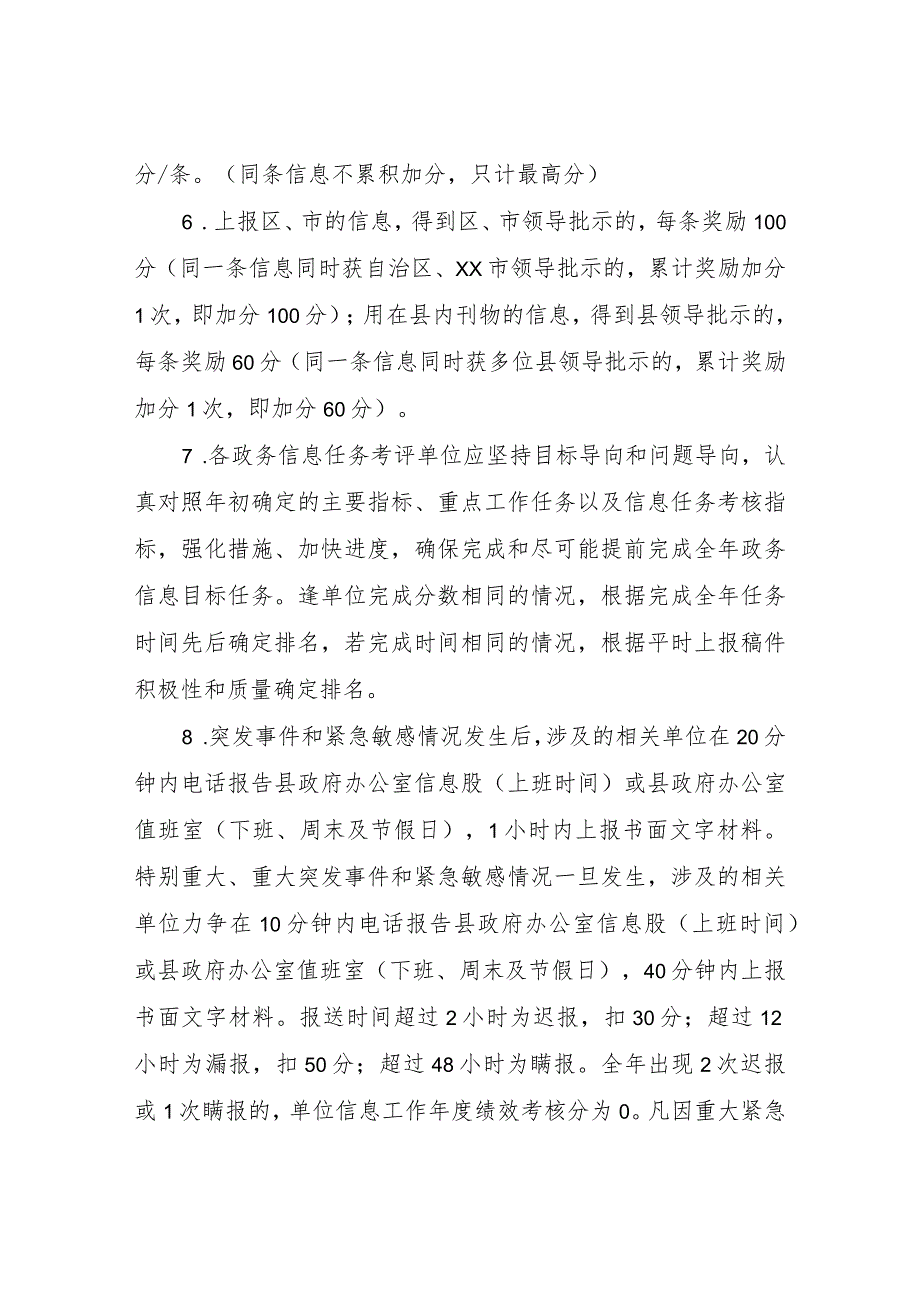 分/条。（同条信息不累积加分，只计最高分）
6 .上报区、市的信息，得到区、市领导批示的，每条奖励 100
分（同一条信息同时获自治区、XX 市领导批示的，累计奖励加分
1 次，即加分 100 分）；用在县内刊物的信息，得到县领导批示的，
每条奖励 60 分（同一条信息同时获多位县领导批示的，累计奖励
加分 1 次，即加分 60 分）。
7 .各政务信息任务考评单位应坚持目标导向和问题导向，认
真对照年初确定的主要指标、重点工作任务以及信息任务考核指
标，强化措施、加快进度，确保完成和尽可能提前完成全年政务
信息目标任务。逢单位完成分数相同的情况，根据完成全年任务
时间先后确定排名，若完成时间相同的情况，根据平时上报稿件
积极性和质量确定排名。
8 .突发事件和紧急敏感情况发生后，涉及的相关单位在 20 分
钟内电话报告县政府办公室信息股（上班时间）或县政府办公室
值班室（下班、周末及节假日），1 小时内上报书面文字材料。
特别重大、重大突发事件和紧急敏感情况一旦发生，涉及的相关
单位力争在 10 分钟内电话报告县政府办公室信息股（上班时间）
或县政府办公室值班室（下班、周末及节假日），40 分钟内上报
书面文字材料。报送时间超过 2 小时为迟报，扣 30 分；超过 12
小时为漏报，扣 50 分；超过 48 小时为瞒报。全年出现 2 次迟报
或 1 次瞒报的，单位信息工作年度绩效考核分为 0。凡因重大紧急